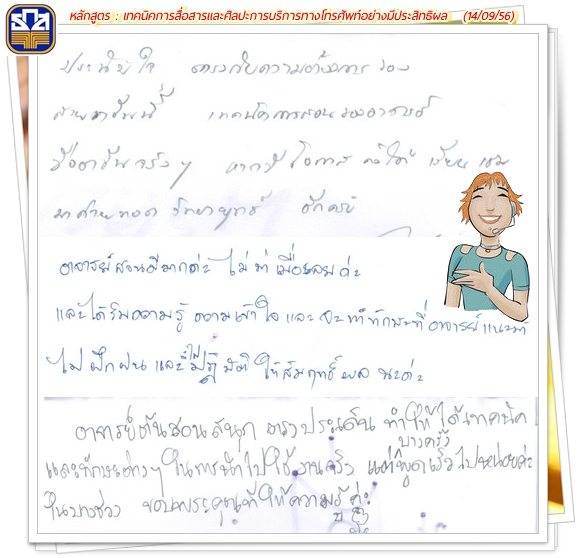 หลักสูตร : เทคนิคการสื่อสารและศิลปะการบริการทางโทรศัพท์อย่างมีประสิทธิผล (14/09/56)
ประทับใจ ตรงกับความต้องการของ
สายอาชีพนี้ เทคนิคการสอนของอาจารย์
มืออาชีพจริงๆ หากมีโอกาส คงได้ เรียนเชิญ
มาถ่ายทอด วิทยายุทธ์ อีกครั้ง
อาจารย์สอนดีมากค่ะ ไม่น่าเบื่อเลยค่ะ
และได้รับความรู้ ความเข้าใจ และจะนำทักษะที่อาจารย์แนะนำ
ไปฝึกฝน และใช้ปฏิบัติ ให้สัมฤทธิ์ผล นะคะ
อาจารย์ต้นสอนสนุก ตรงประเด็น ทำให้ได้เทคนิค
และทักษะต่างๆ ในการนำไปใช้งานจริง แต่บางครั้งพูดเร็วไปหน่อยค่ะ
ในบางช่วง ขอบพระคุณที่ให้ความรู้ค่ะ